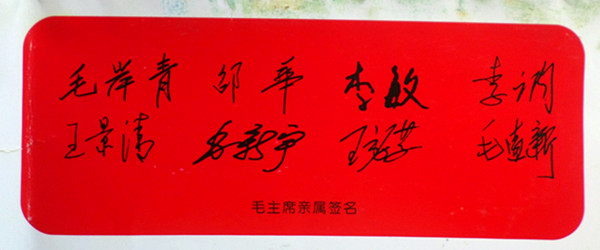 毛岸青 邵华 李敏 李讷
王景清 毛新宇 王效芝 毛远新
毛主席亲属签名